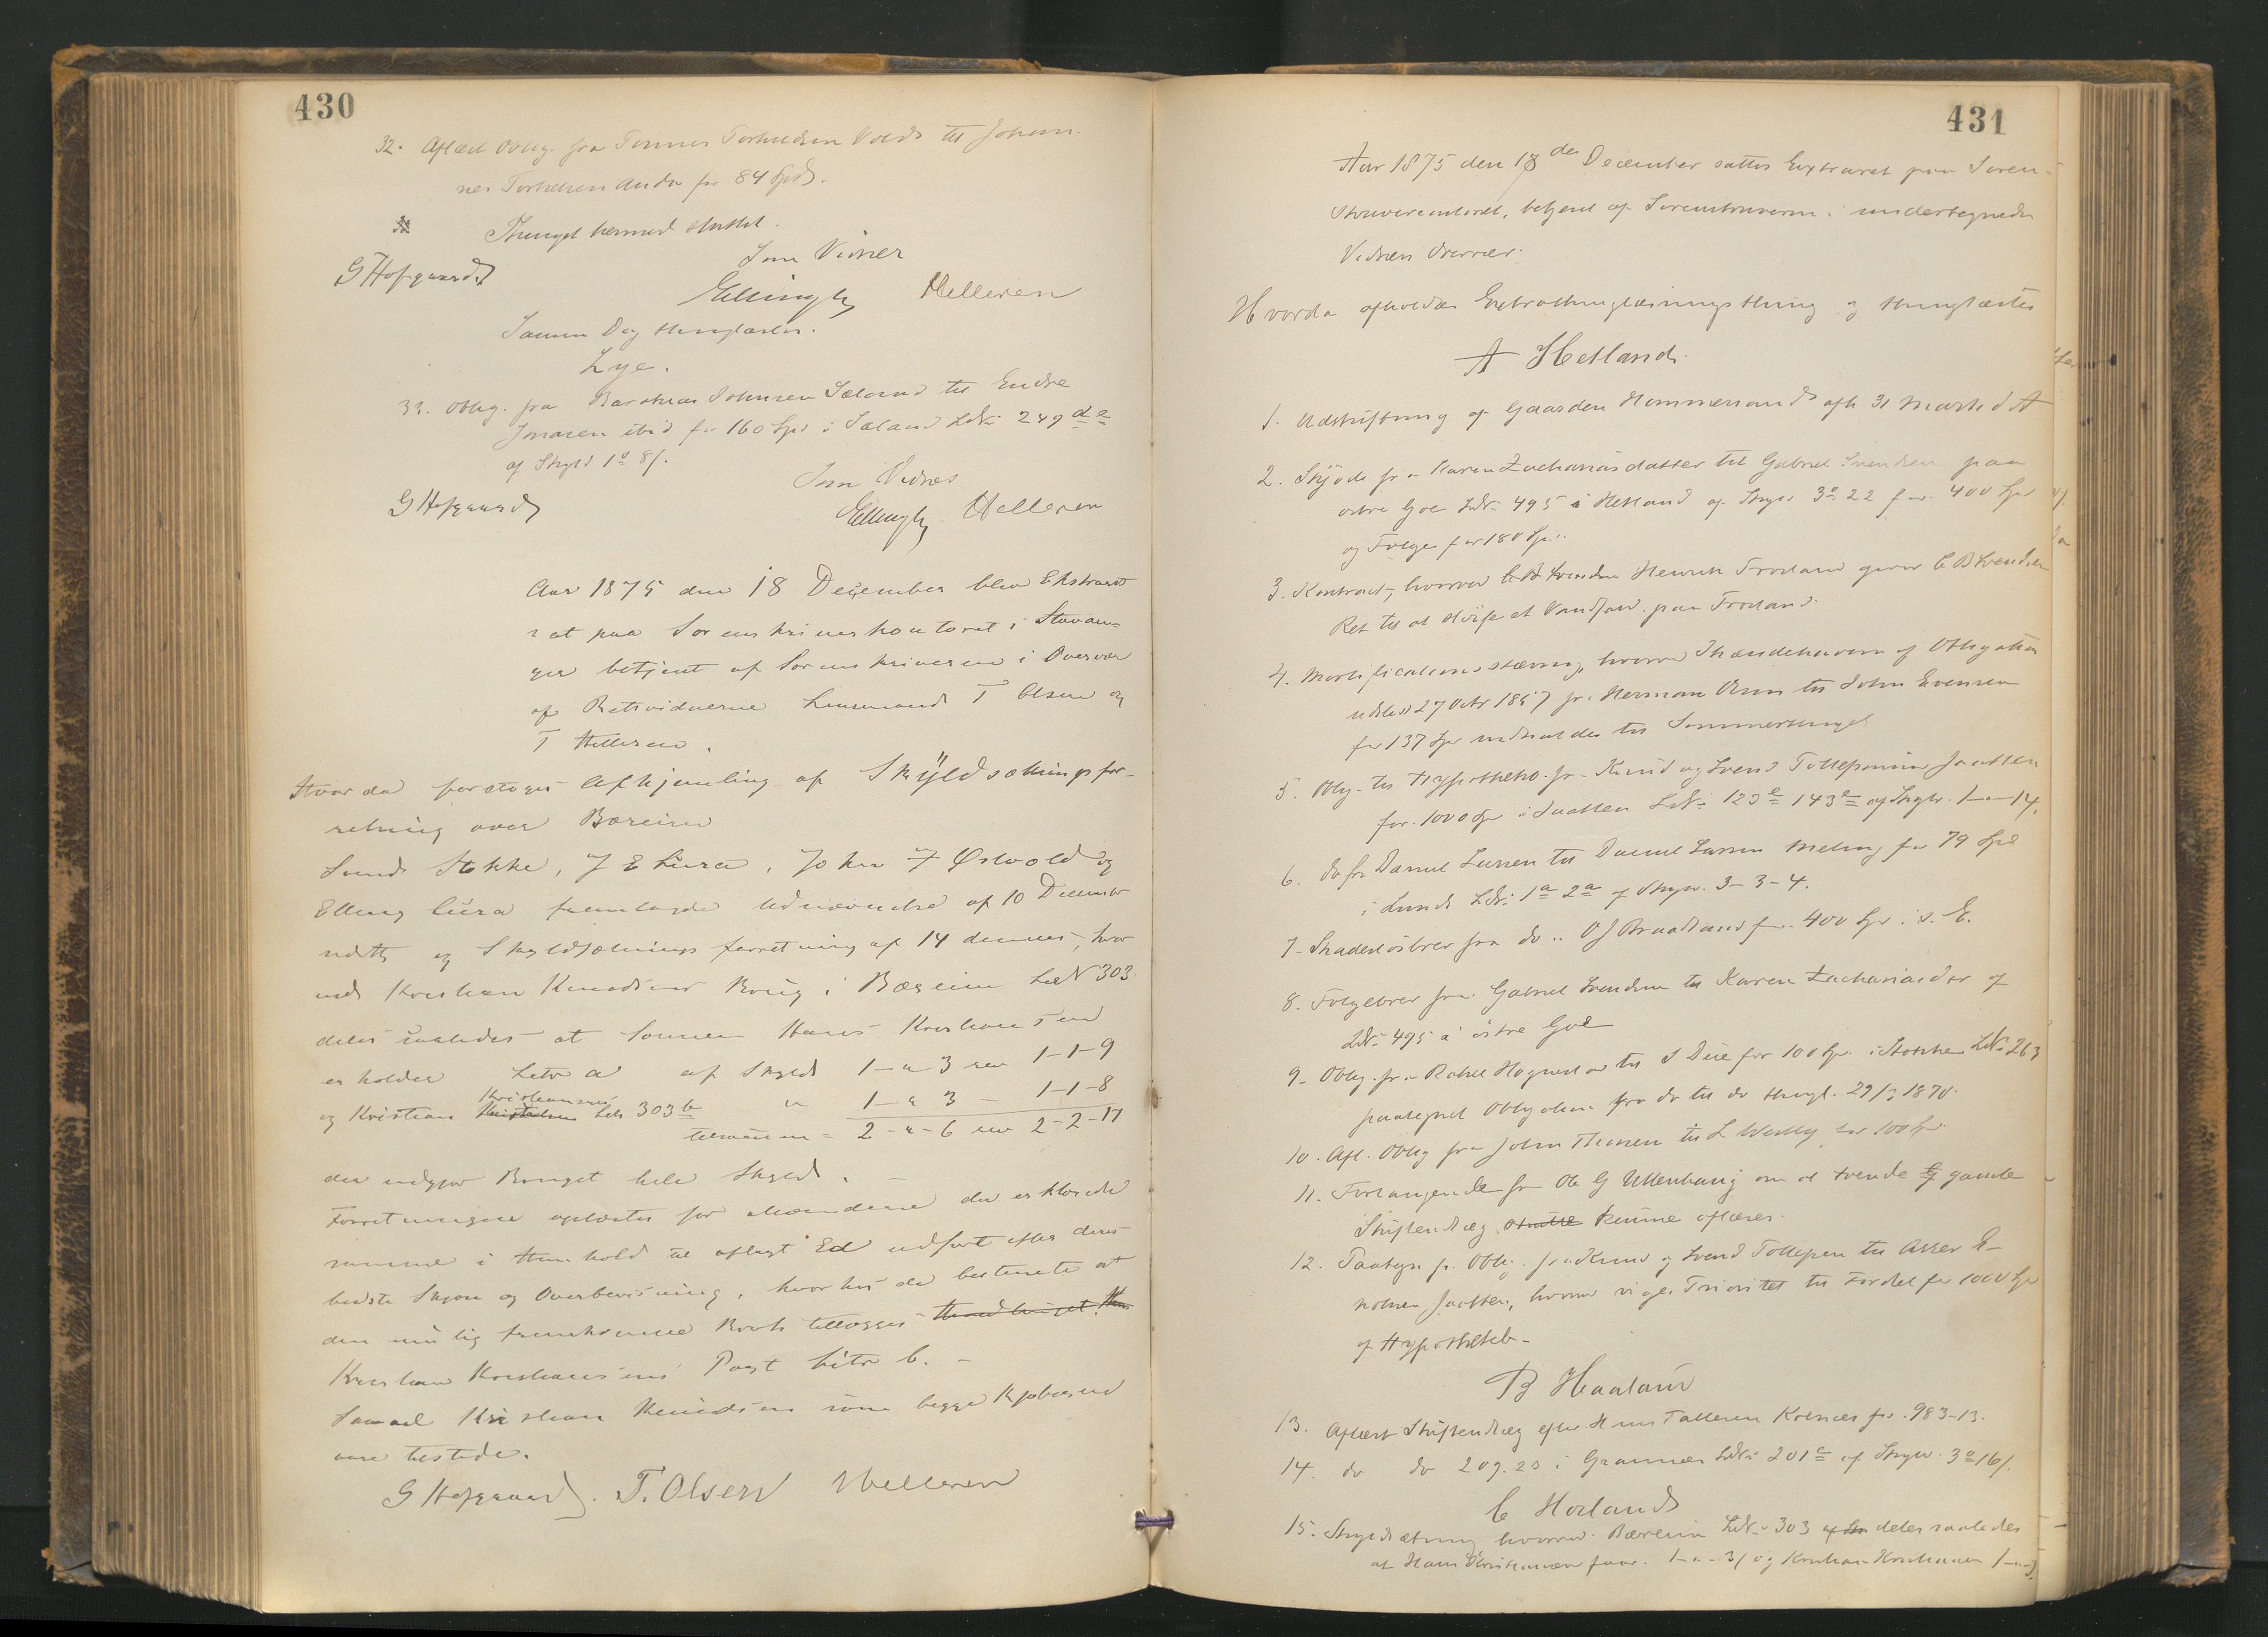 430
32. Aflæst Oblig. fra Tønnes Torkildsen Vold til Johan-
nes Torkelsen Anda for 84 Spd.
Thinget hermed sluttet.
Som Vidner
G Hofgaard
Ellingb Helleren
Samme Dag thinglæstes.
Lye.
33. Oblig. fra Johnsen Sæland til Endre
Jonasen ibid for 160 Spd i Sæland LNr 249
af Skyld 1 8/.
Som Vidner
G Hofgaard Ellingb Helleren
Aar 1875 den 18 December blev Ekstraret
sat paa Sorenskriverkontoret i Stavan-
ger betjent af Sorenskriveren i Overvær
af Retsvidnerne Lensmand T Olsen og
T Helleren.
Hvorda foretoges Afhjemling af Skyldsætningsfor-
retning over Bæreim
Svend Stokke, J E Lura, John F Østvold og
Elling Lura fremlagde Udnævnelse af 10 December
og Skyldsætningsforretning af 14 dennes, hvor
ved Kristian Knudsens Brug i Bæreim LNr 303
deles saaledes at Sønnen Hans Kristiansen
erholder Litr a af Skyld 1 - " 3 rev 1-1-9
og Kristian Kristiansen Litr 303 b " 1 - " 3 - 1-1-8
tilsammen = 2 - " - 6 rev 2-2-17
der udgjør Brugets hele Skyld.
Forretningen oplæstes for Mændene der erklærede
samme i Henhold til aflagt Ed udført efter deres
bedste Skjøn og Overbevisning, hvorhos de bestemte at
den mulig fremkomne Brøk tillægges
Kristian Kristiansens Part Litr b. -
Saavel Kristian Knudsen som begge Kjøberne
vare tilstede.
G Hofgaard. T. Olsen Helleren
431
Aar 1875 den 18 de December sattes Extraret paa Soren-
skrivercontoret, betjent af Sorenskriveren i undertegnede
Vidners Overvær.
Hvorda afholdes Extrathinglæsningsthing og thinglæstes
A Hetland.
1. Udskiftning af Gaarden Hommersand afh 31 Marts d A
2. Skjøde fra Karen Zachariasdatter til Gabriel Svendsen paa
østre Goe LNr 495 i Hetland af Skyld 3 22 for 400 Spd
og Folge for 180 Spd.
3. Kontract, hvorved Henrik Frøiland giver C B Svendsen
Ret til at drive et Vandfald paa Frøiland.
4. Mortificationsstævning, hvorved Ihændehaveren af Obligation
udstedt 27 Octr 1857 fra Herman til John Evensen
for 137 Spd indkaldes til Sommerthinget
5. Oblig. til Hypothekb. fra Knud og Svend Tollefsønner Jaatten
for 1000 Spd i Jaatten LNr 123 143 af Skyld 1-"-14.
6. do fra Daniel Larsen til Daniel Larsen Meling for 79 Spd
i Lunde LNr 1a 2a af Skyld. 3-3-4.
7. Skadesløsbrev fra do " O J Braatland for 400 Spd i s. E.
8. Folgebrev fra Gabriel Svendsen til Karen Zachariasdtr af
LNr 495 a østre Goe
9. Oblig. fra Rakel til S Due for 100 Spd i Stokke LNr 263
paategnet Obligation fra do til do thingl. 29/3 1870.
10. Afl. Oblig fra John Thorsen til L for 100 Spd
11. Forlangende fra Ole G Ullenhaug om at tvende gamle
Skiftendlæg kunne aflæses.
12. Paategn. fr. Oblig. fra Knud og Svend Tollefsen til Asser E-
Jaatten, hvorved viges Prioritet til Fordel for 1000 Spd
af Hypothekb-
B Haaland
13. Aflæst Skiftendlæg efter Tollersen Kolnes for 983-13.
14. do do 209.23 i Grannæs LNr 201 c af Skyld 3 16/.
C Høiland
15. Skyldsætning hvorved Bæreim LNr 303 deles saaledes
at Hans Kristiansen faar 1-"-3/ og Kristian Kristiansen 1-"-3.